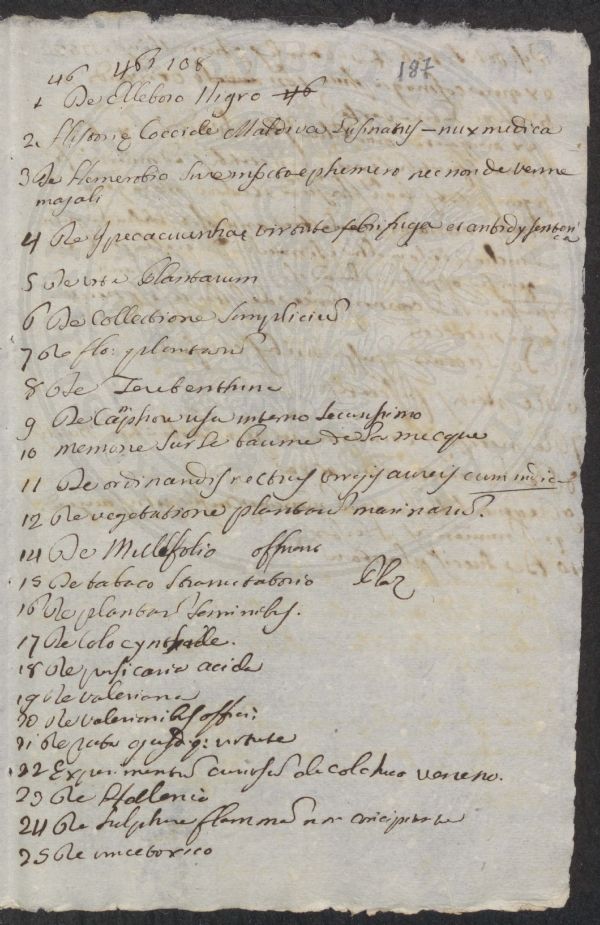 187
46 461 108
1 De Elleboro Nigro 46
2 Historię Cocci de Maldiva Lusinanis - nux medica
3 De Hemerobio sive ephemero nec non de verme
majali
4 De Ypecacuanhae virtute febrifuga et antidysenteri
ca
5 De vita Plantarum
6 De Collectione Simplicium
7 De flor plantarum
8 De Terebenthina
9 De Camphorae usu interno securissimo
10 memoire sur le baume de la mecque
11 De ordinandis rectius virgis aureis cum
12 De vegetatione plantarum marinarum.
14 De Millefolio
15 De tabaco sternutatorio
16 De plantar seminibus.
17 De Colocynthide.
18 De persicaria acida
19 De valeriana
20 De valerianis offici:
21 De ejusdq: virtute
22 Experimentum curiosum de colchico veneno.
23 De
24 De sulphure flammam non concipiente
25 De vincetoxico